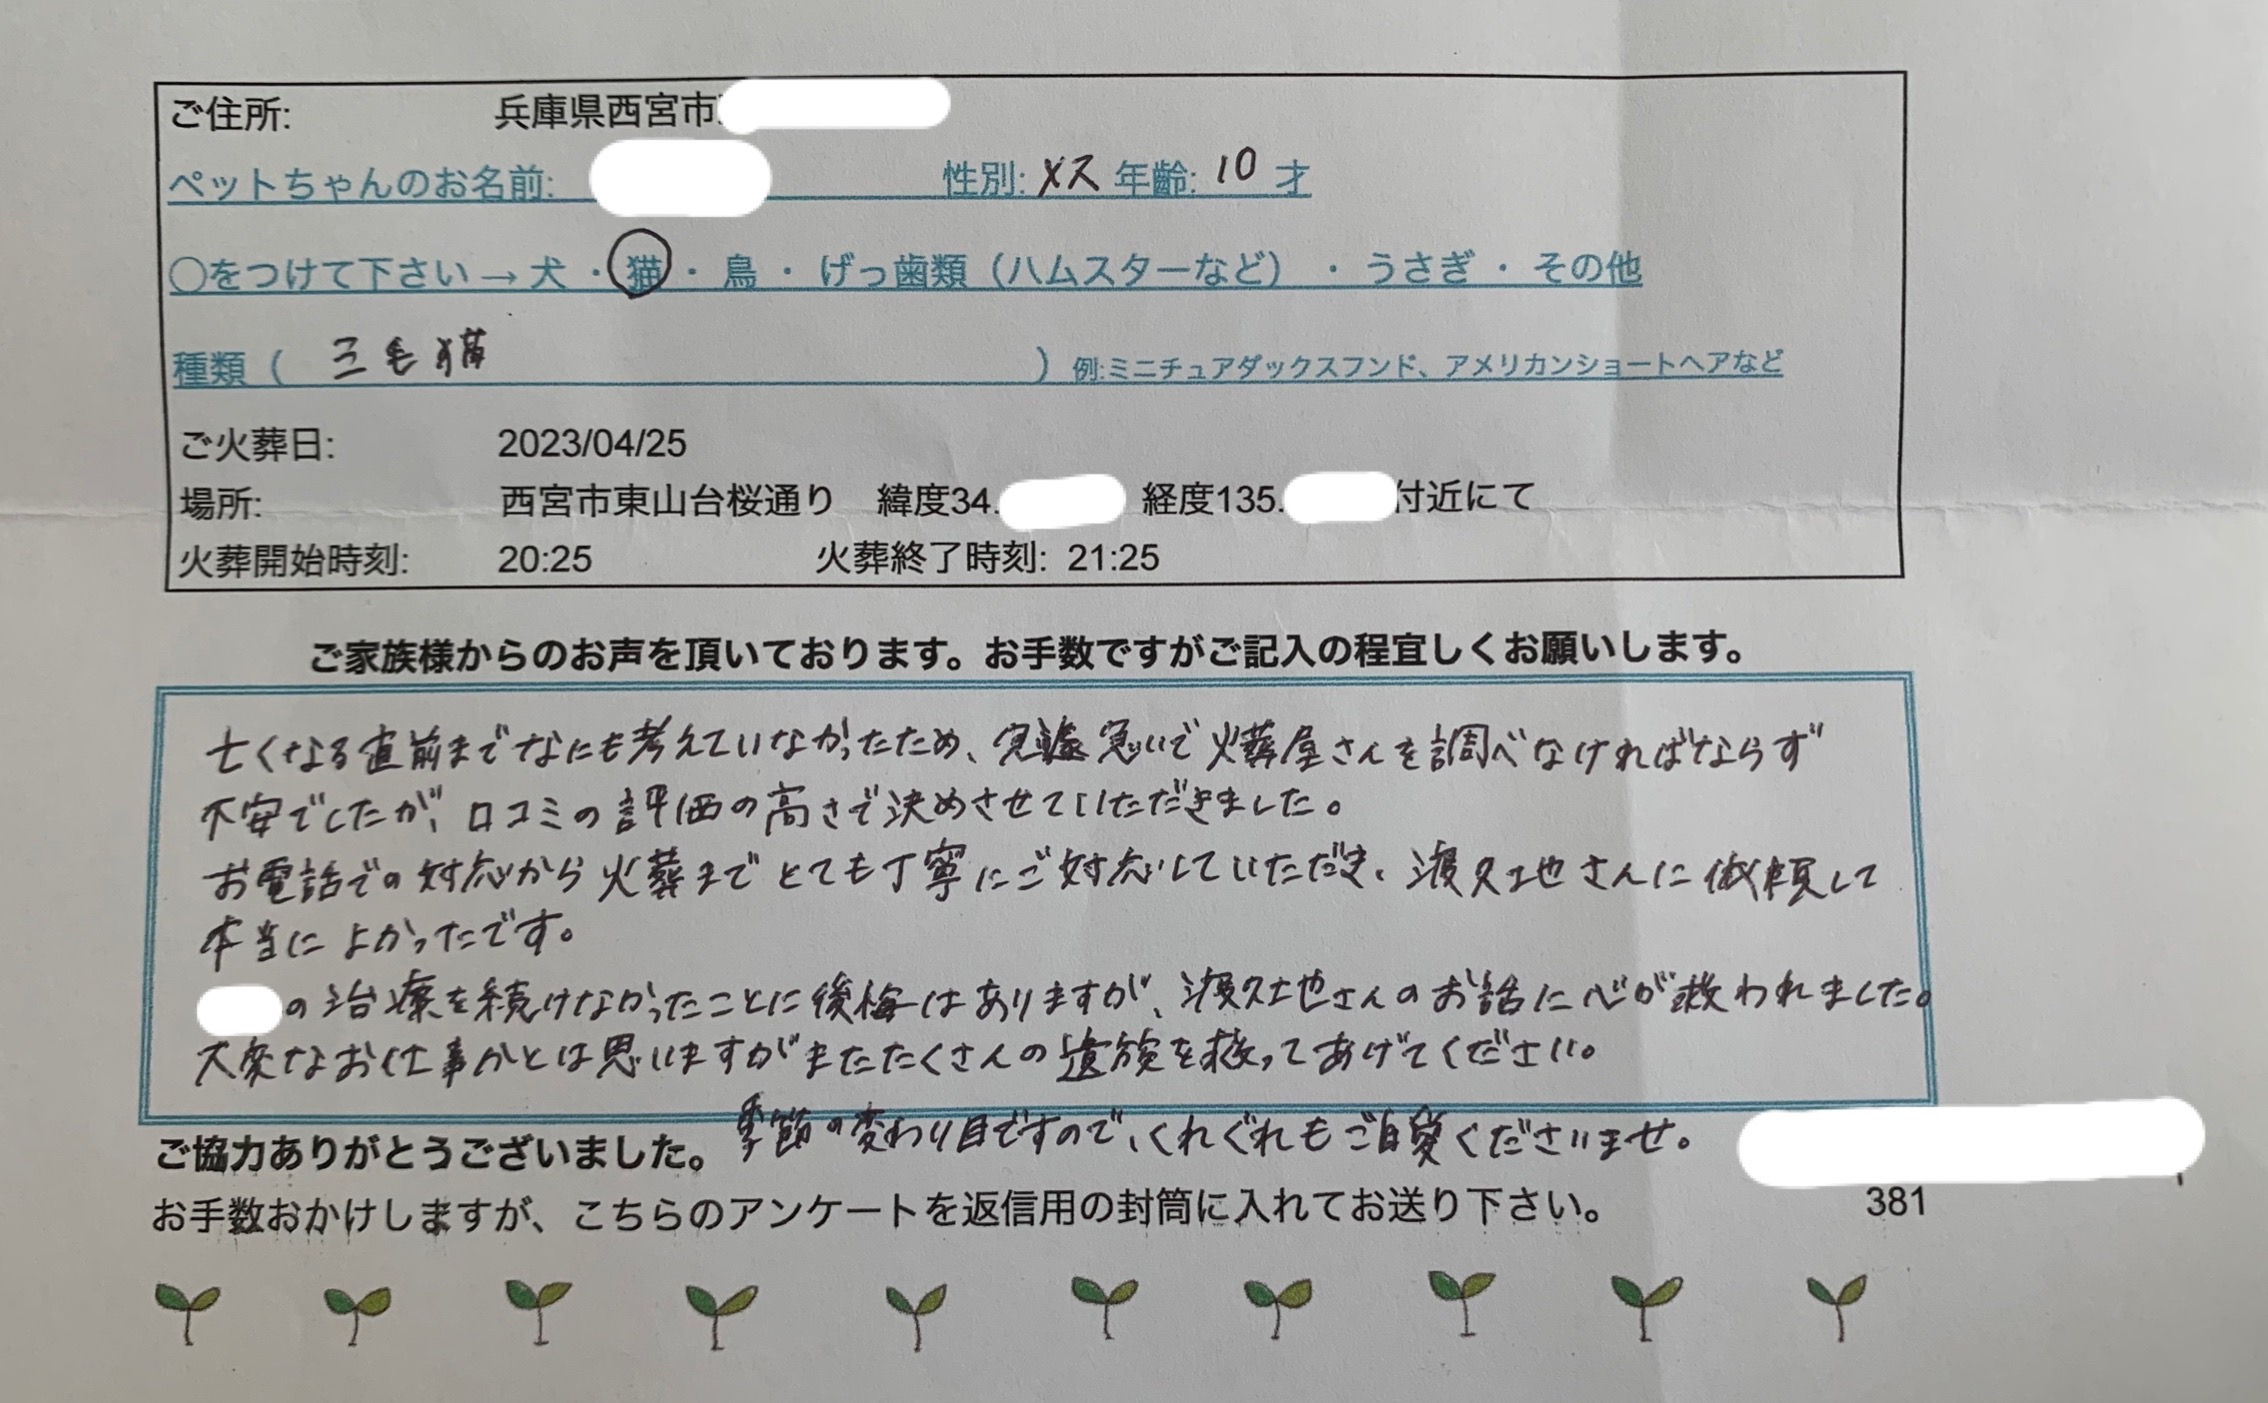 ご住所: 兵庫県西宮市
ペットちゃんのお名前: 性別: メス 年齢: 10 才
〇をつけて下さい→犬・猫・鳥・げっ歯類（ハムスターなど）・うさぎ・その他
種類（ 三毛猫 ）例:ミニチュアダックスフンド、アメリカンショートヘアなど
ご火葬日: 2023/04/25
場所: 西宮市東山台桜通り 緯度34. 経度135. 付近にて
火葬開始時刻: 20:25 火葬終了時刻: 21:25
ご家族様からのお声を頂いております。お手数ですがご記入の程宜しくお願いします。
亡くなる直前までなにも考えていなかったため、急いで火葬屋さんを調べなければならず
不安でしたが、口コミの評価の高さで決めさせていただきました。
お電話での対応から火葬までとても丁寧にご対応していただき、渡久地さんに依頼して
本当によかったです。
の治療を続けなかったことに後悔はありますが、渡久地さんのお話に心が救われました。
大変なお仕事かとは思いますがまたたくさんの遺族を救ってあげてください。
季節の変わり目ですので、くれぐれもご自愛くださいませ。
ご協力ありがとうございました。
お手数おかけしますが、こちらのアンケートを返信用の封筒に入れてお送り下さい。 381